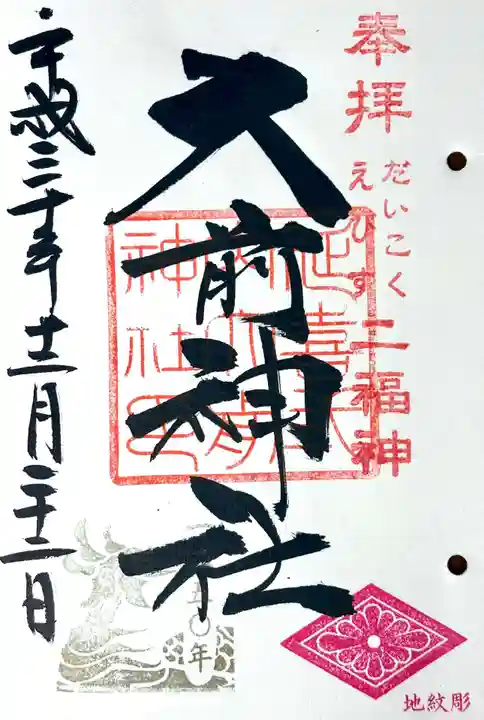 奉拝
だいこく
えびす
二福神
大前神社
延喜式内大前神社印
平成三十年十二月二十二日
年
地紋彫